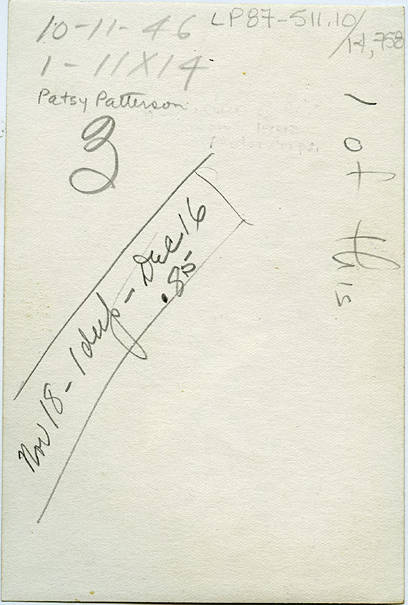 10-11-46
LP87-511.10/
14,758
1-11X14
Patsy Patterson
3
Nov 18 - 1 dup - Dec 16
.85
1 of